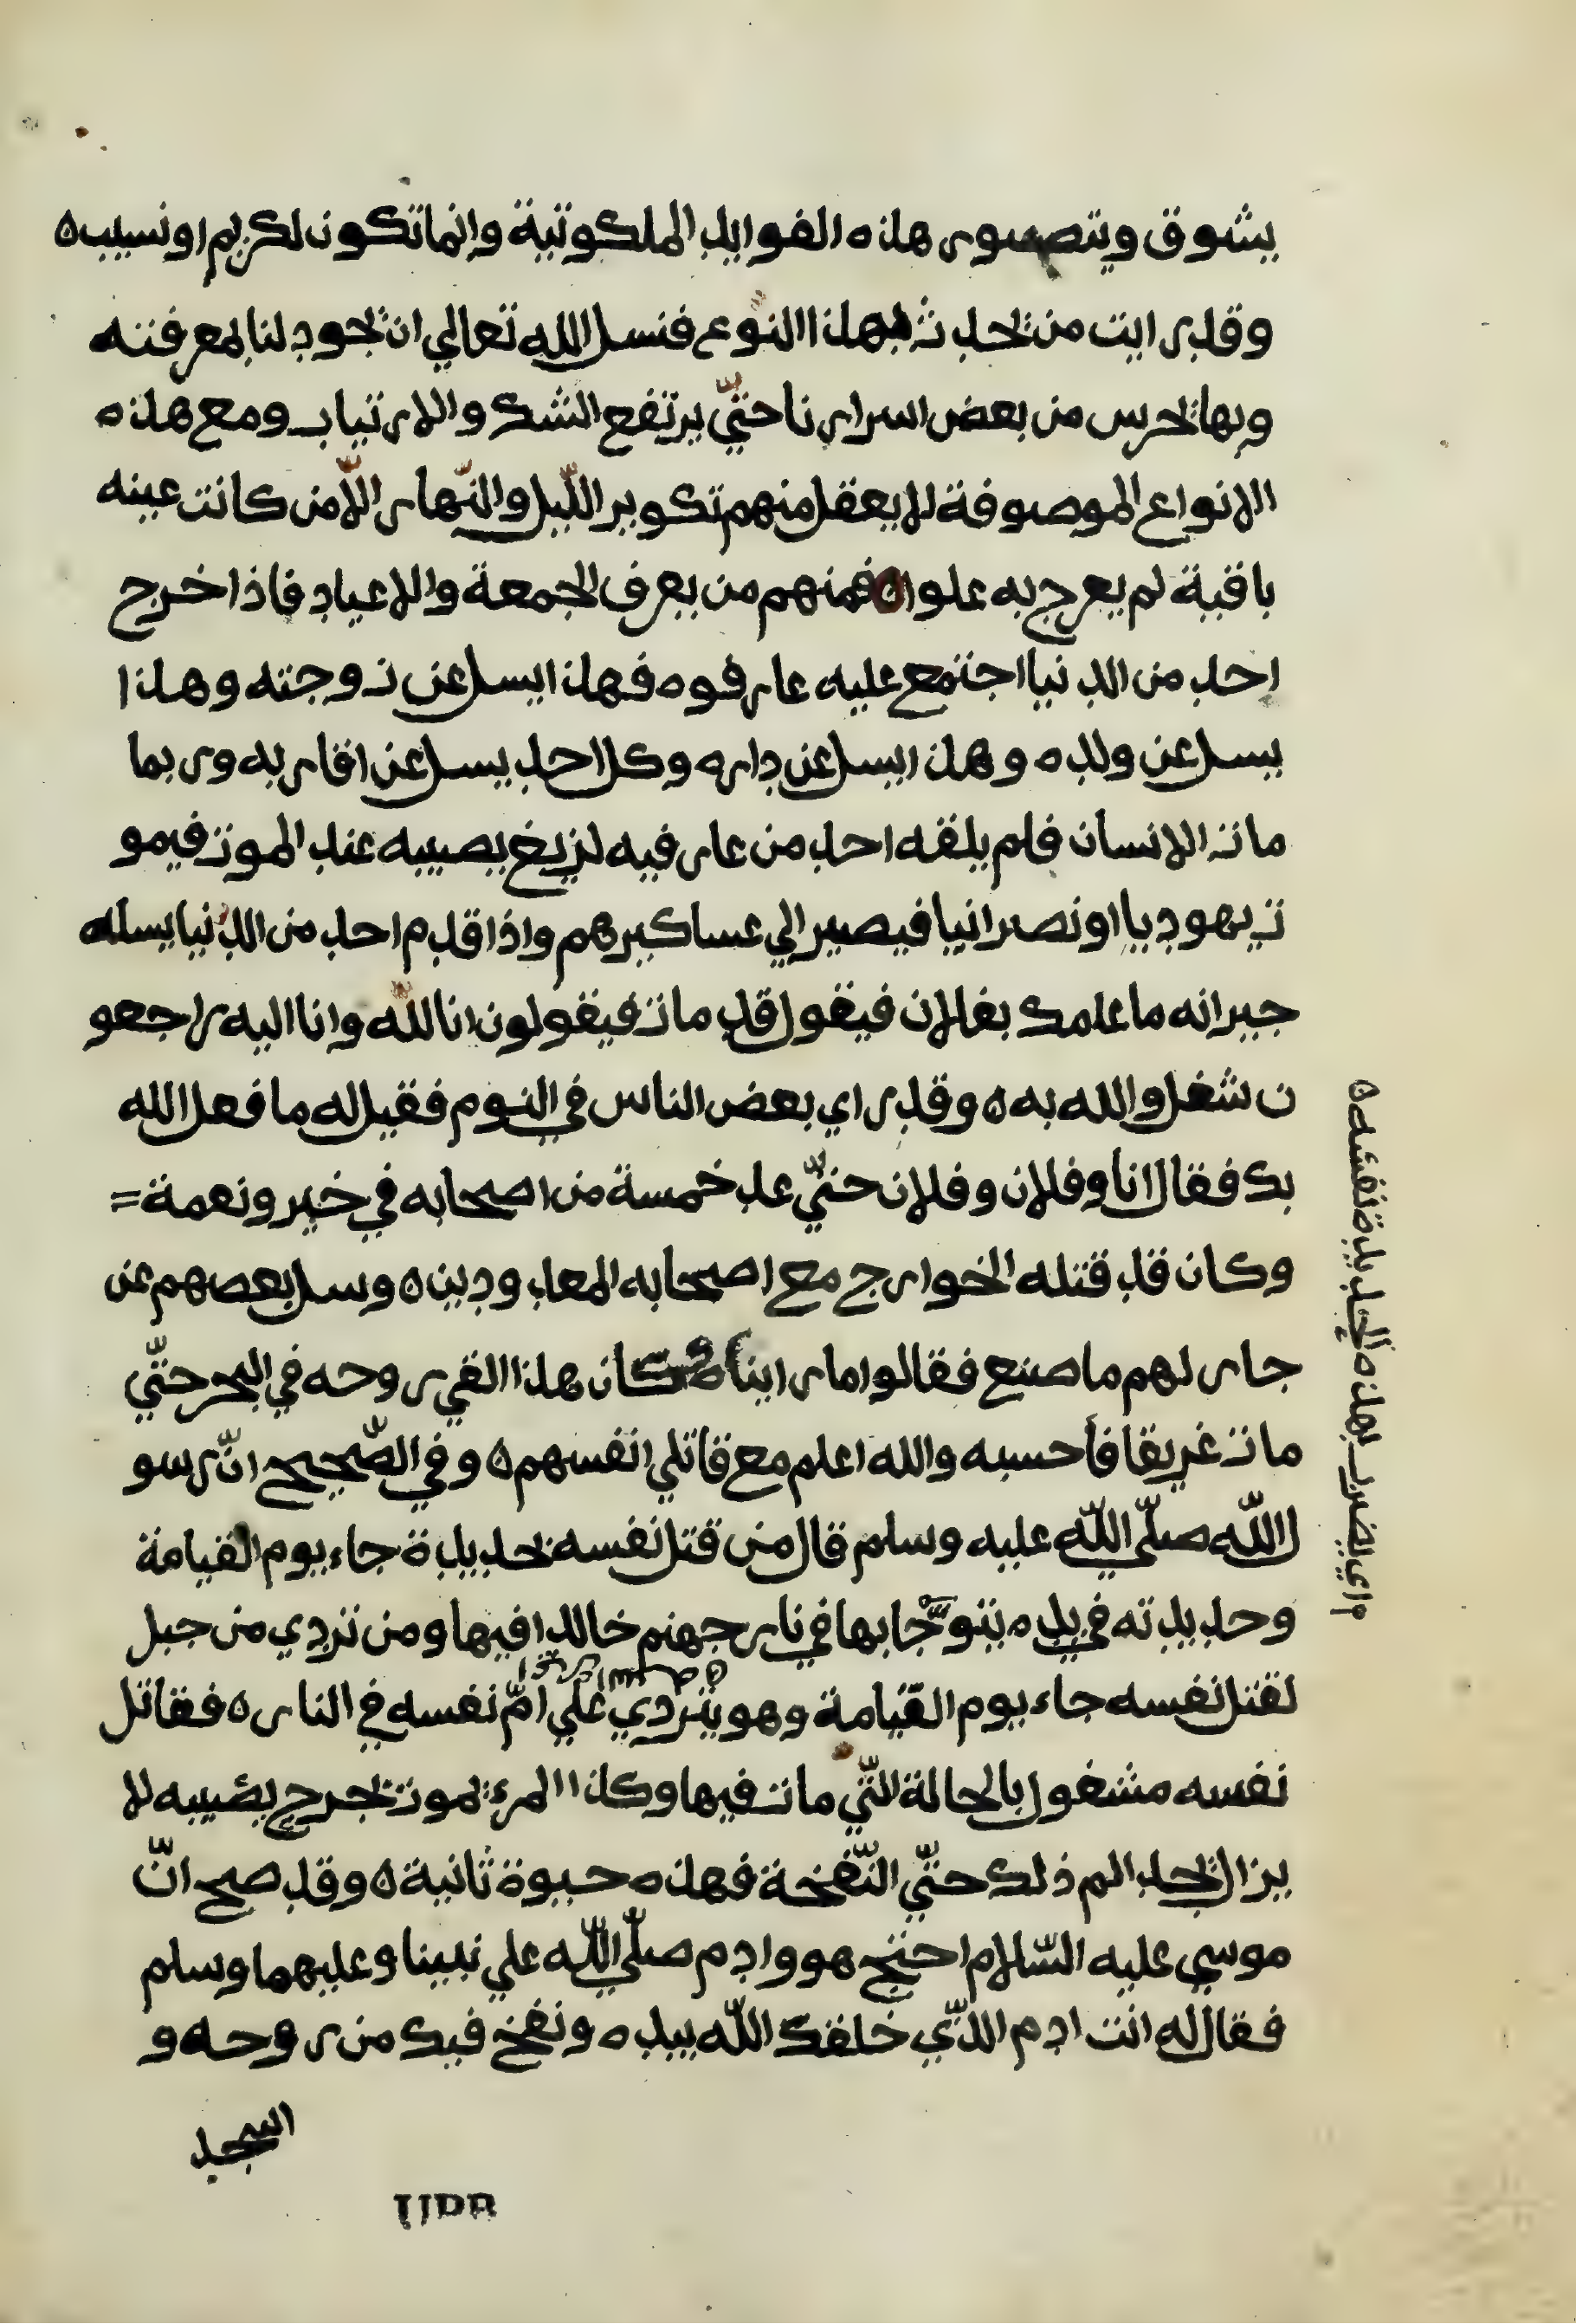 يشوق ويتصور هذه الفوايد الملكوتية وانما تكون لكريم او نسيب ه
وقد رايت من تحدث بهذا النوع فنسل الله تعالي ان تجود لنا بمعرفته
وبها تحرس من بعض اسرارنا حتّي يرتفع الشك والارتياب ومع هذه
الانواع الموصوفة لا يعقل منهم تكوير اللّيل والنّهار الّا من كانت عينه
باقية لم يعرج به علوا ه فمنهم من يعرف الجمعة والاعياد فاذا خرج
احد من الدنيا اجتمع عليه عارفوه فهذا يسل عن زوجته وهذا
يسل عن ولده وهذا يسل عن داره وكل احد يسل عن اقاربه وربما
مات الانسان فلم يلقه احد من عارفيه لزيغ يصيبه عند الموت فيمو
ت يهوديا او نصرانيا فيصير الي عساكيرهم واذا قدم احد من الدنيا يسله
جيرانه ما علمك بفلان فيقول قد مات فيقولون انا لله وانا اليه راجعو
ن شغل والله به ه وقد راي بعض الناس في النوم فقيل له ما فعل الله
بك فقال انا وفلان وفلان حتّي عد خمسة من اصحابه في خير ونعمة =
وكان قد قتله الخوارج مع اصحابه المعدودين ه وسل بعضهم عن
جار لهم ما صنع فقالوا ما رايناه كان هذا القي روحه في البحر حتّي
مات غريقا فأحسبه والله اعلم مع قاتلي انفسهم ه وفي الصّحيح انّ رسو
ل اللّه صلّي اللّه عليه وسلم قال من قتل نفسه بحديدة جاء يوم القيامة
وحديدته في يده يتوجّا بها في نار جهنم خالدا فيها ومن تردي من جبل
لقتل نفسه جاء يوم القيامة وهو يتردي علي امّ نفسه في النار ه فقاتل
نفسه مشغول بالحالة التّي مات فيها وكذا المرء تموت بجرح يصيبه لا
يزال تجد الم ذلك حتّي النّفخة فهذه حيوة ثانية ه وقد صح انّ
موسي عليه السّلام احتج هو وادم صلّي اللّه علي نبينا وعليهما وسلم
فقال له انت ادم الذّي خلقك اللّه بيده ونفخ فيك من روحه و
اسجد
اي يضرب بهذه الحديدة نفسه ه